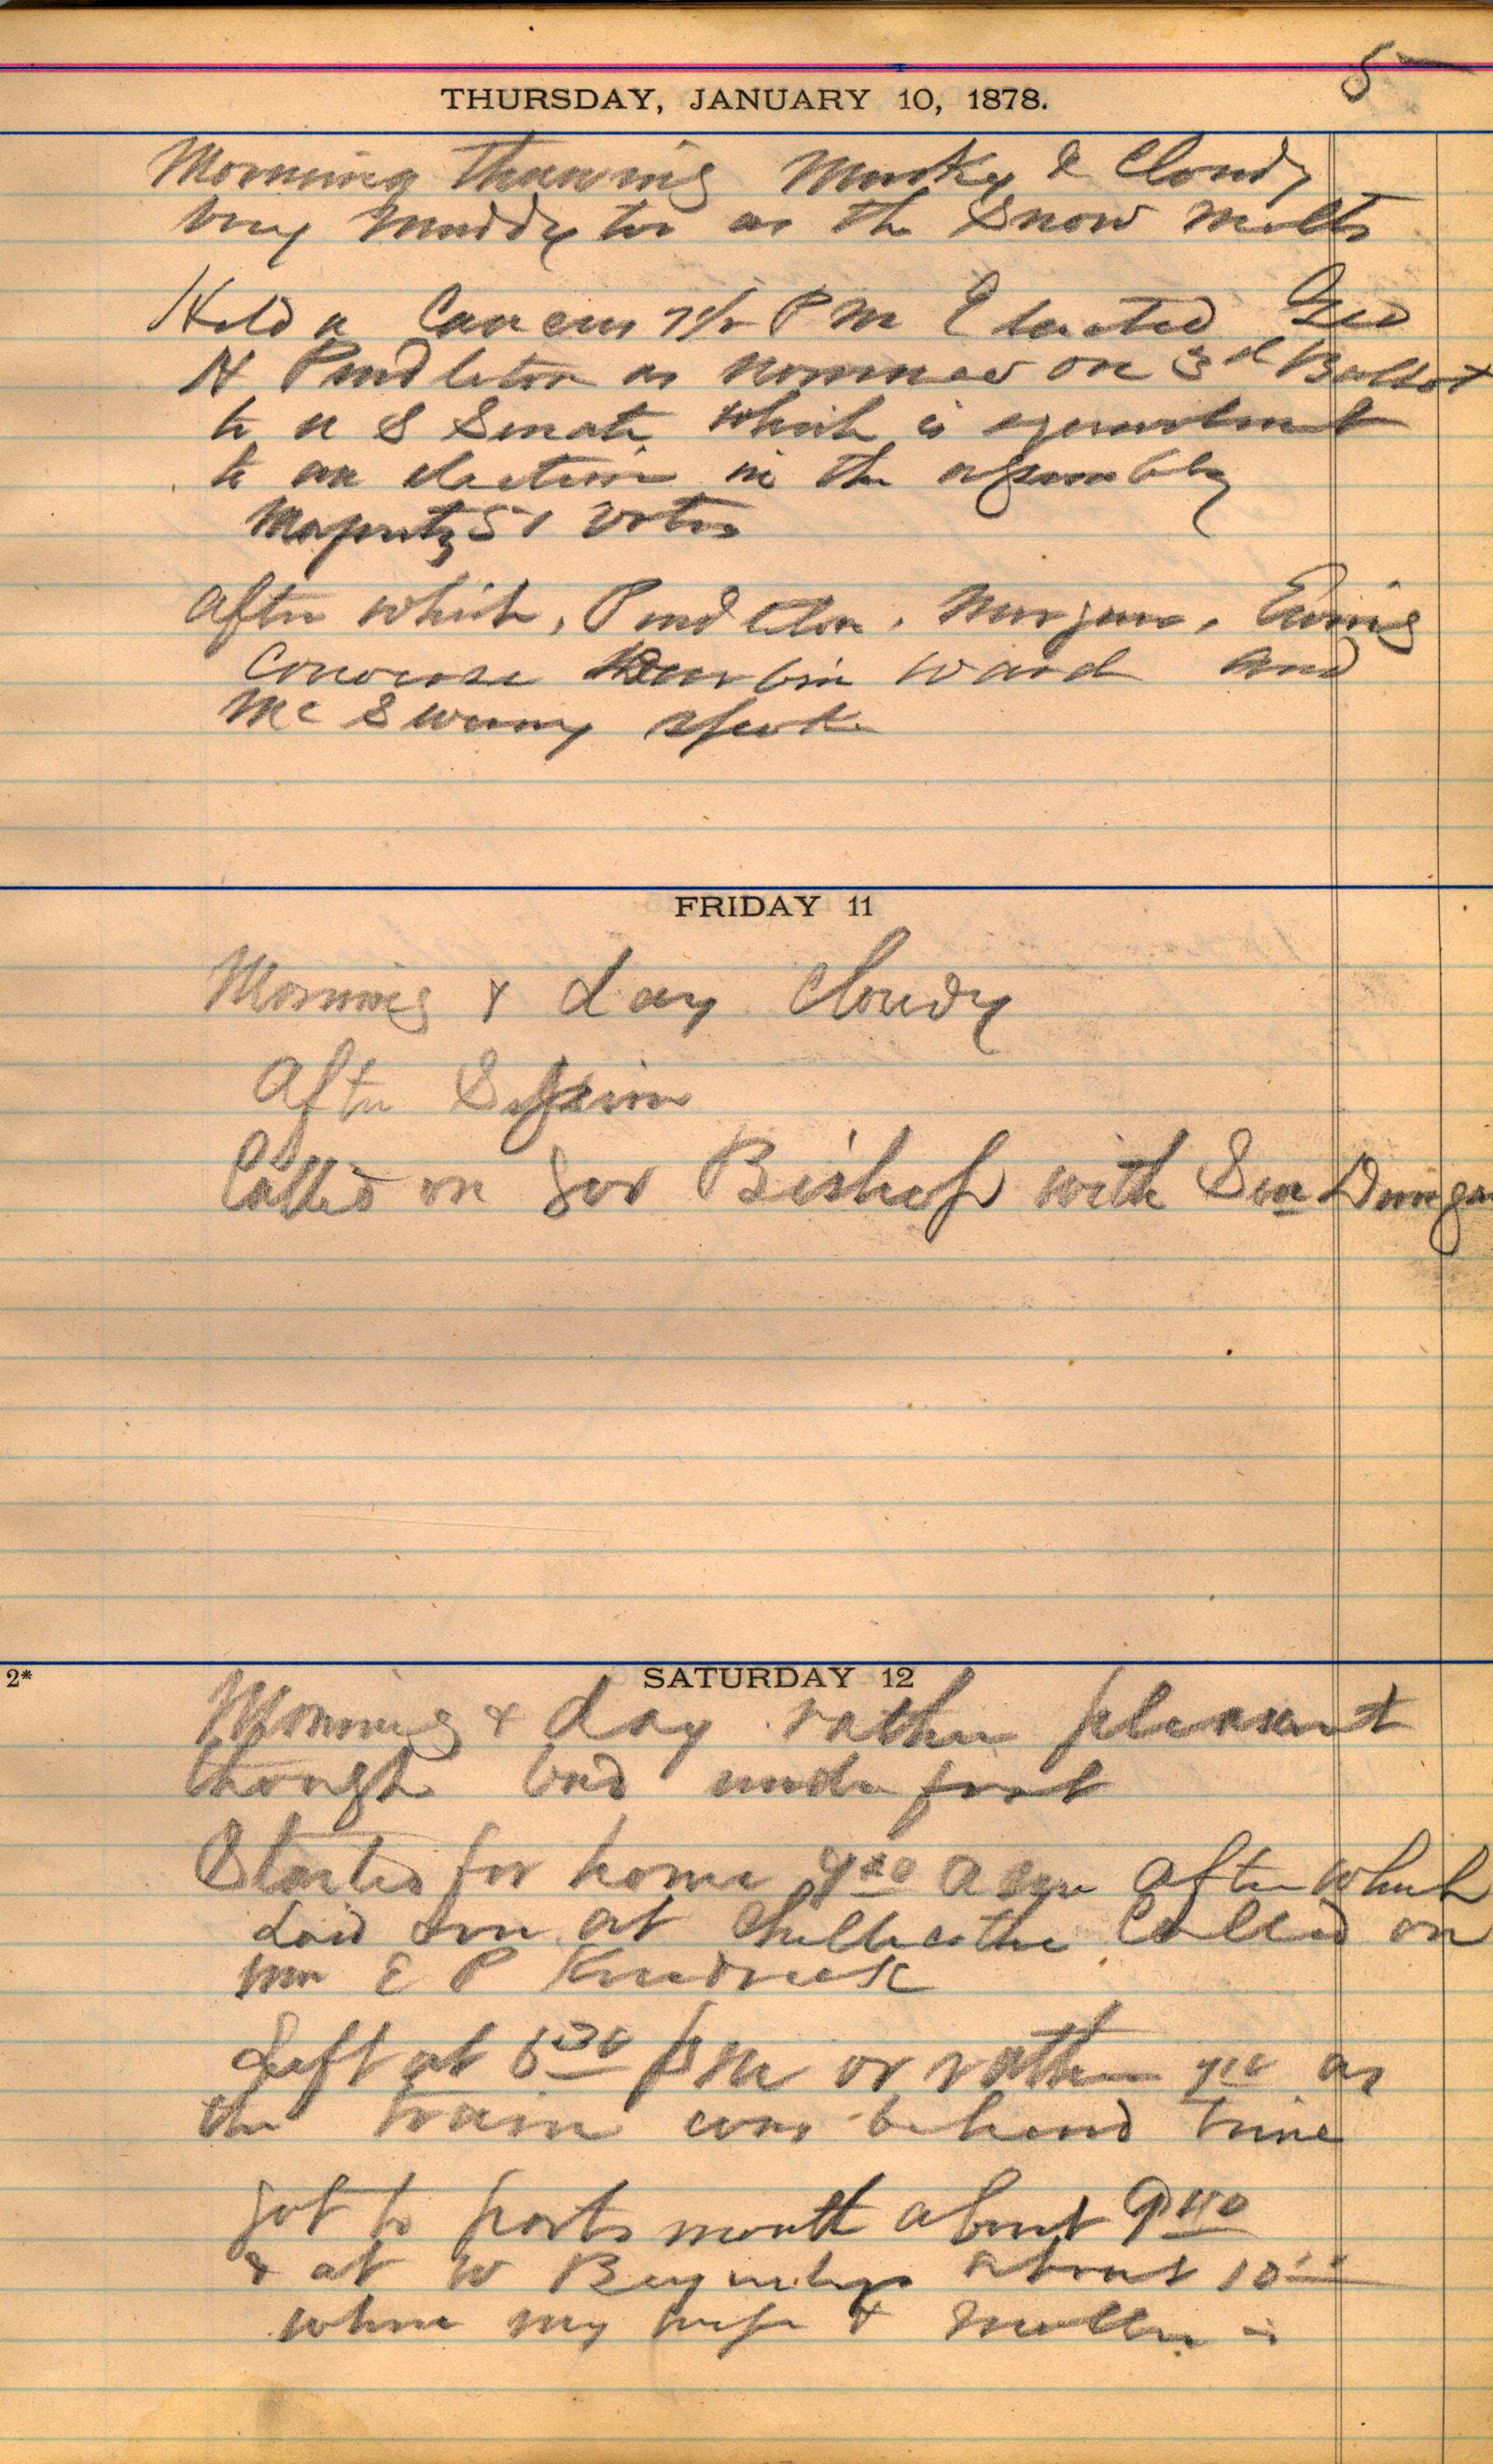 5
THURSDAY, JANUARY 10, 1878.
Morning thawing Murky & Cloudy
Very Muddy too as the Snow melts
Held a Caucus 7½ P M Elected Geo
H Pendleton as nominee on 3rd Ballot
to U S Senate which is equivalent
to an election in the assembly
Majority 51 Votes
After which, Pendleton, Morgan, Ewing
Converse Durbin Ward and
McSweeny spoke
FRIDAY 11
Morning & day Cloudy
After Session
Called on Gov Bishop with Sen Dungan
2*
SATURDAY 12
Morning & day rather pleasant
though bad under foot
Started for home A M after which
Laid over at Chillicothe Called on
Mr E P Kendrick
Left at 6 30 P M or rather as
the train was behind time
got to Portsmouth about 9
& at W about 10
where my wife & Mollie is